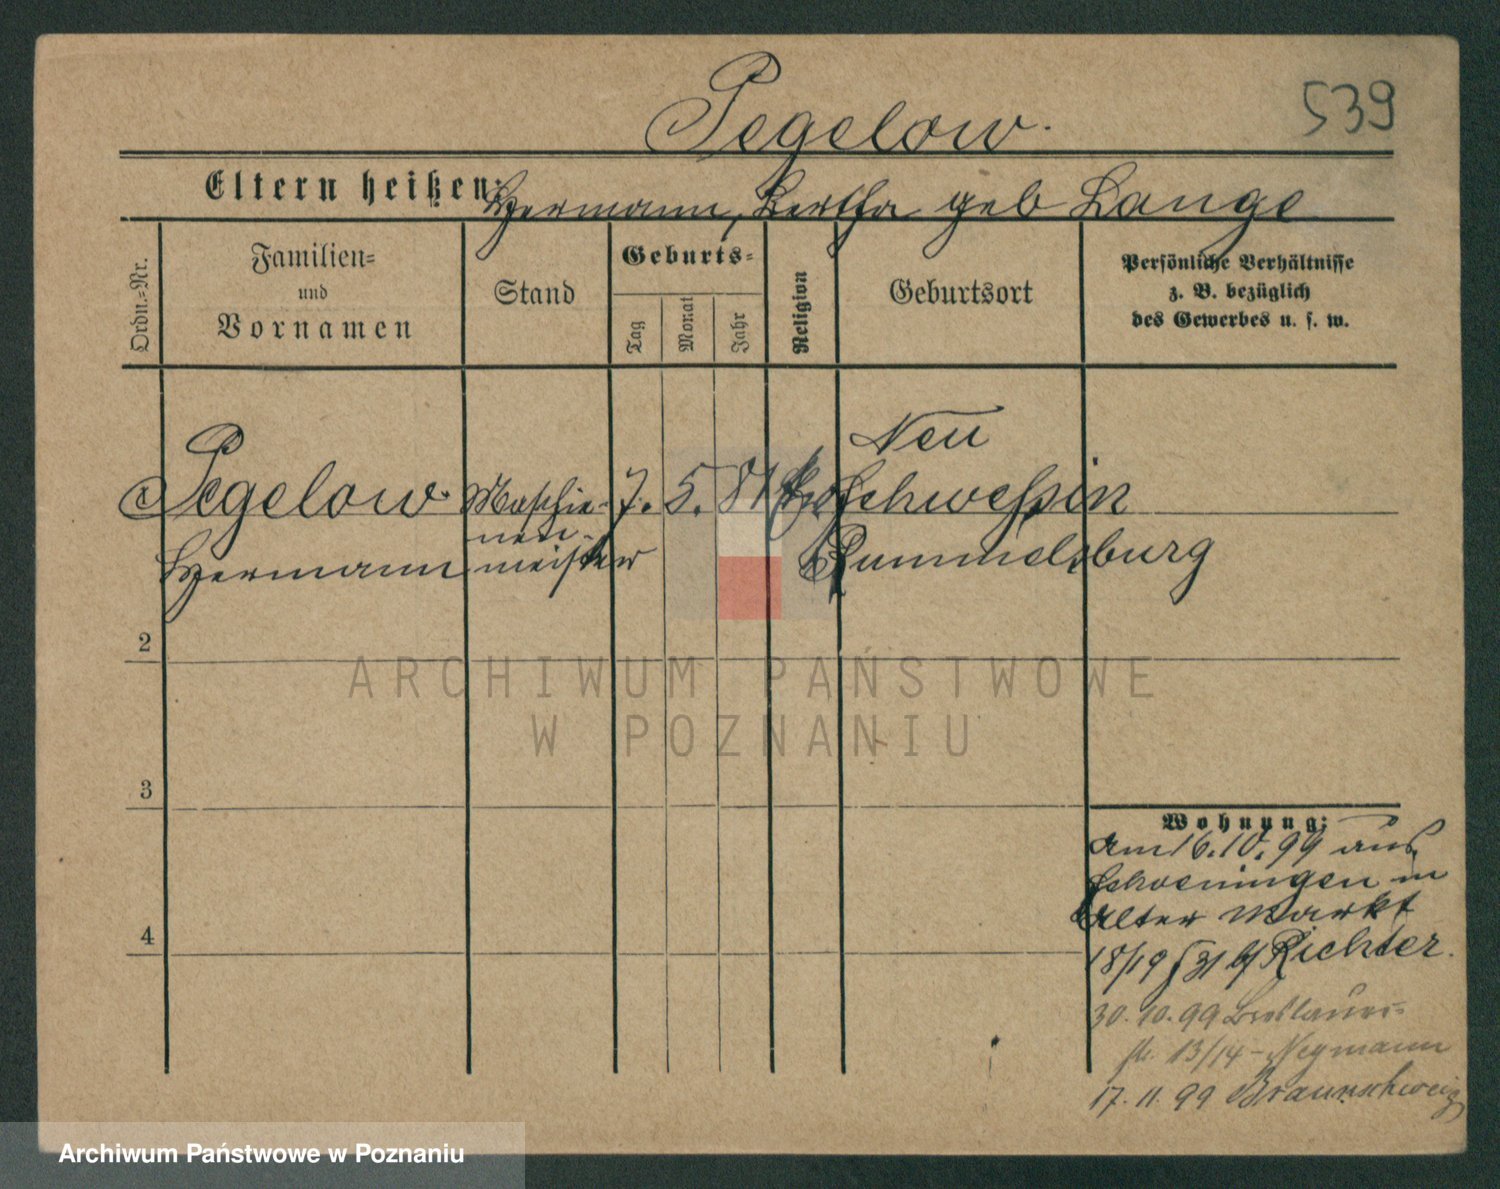 Pegelow.
539
Eltern heißen: Hermann, Bertha geb Lange
Ordn.=Nr.
Familien=
und
Vornamen
Stand
Geburts=
Tag
Monat
Jahr
Religion
Geburtsort
Persönliche Verhältnisse
z. B. bezüglich
des Gewerbes u. s. w.
Neu
Pegelow Maschie- 7. 5. 81 Schwessin
nen-
Hermann meister Rummelsburg
2
3
4
Wohnung:
am 16.10.99 aus
Schoeningen in
Alter Markt
18/19 b/ Richter.
30.10.99 Breslauer-
str. 13/14 - Neymann
17.11.99 Braunschweig
ARCHIWUM PAŃSTWOWE
W POZNANIU
Archiwum Państwowe w Poznaniu